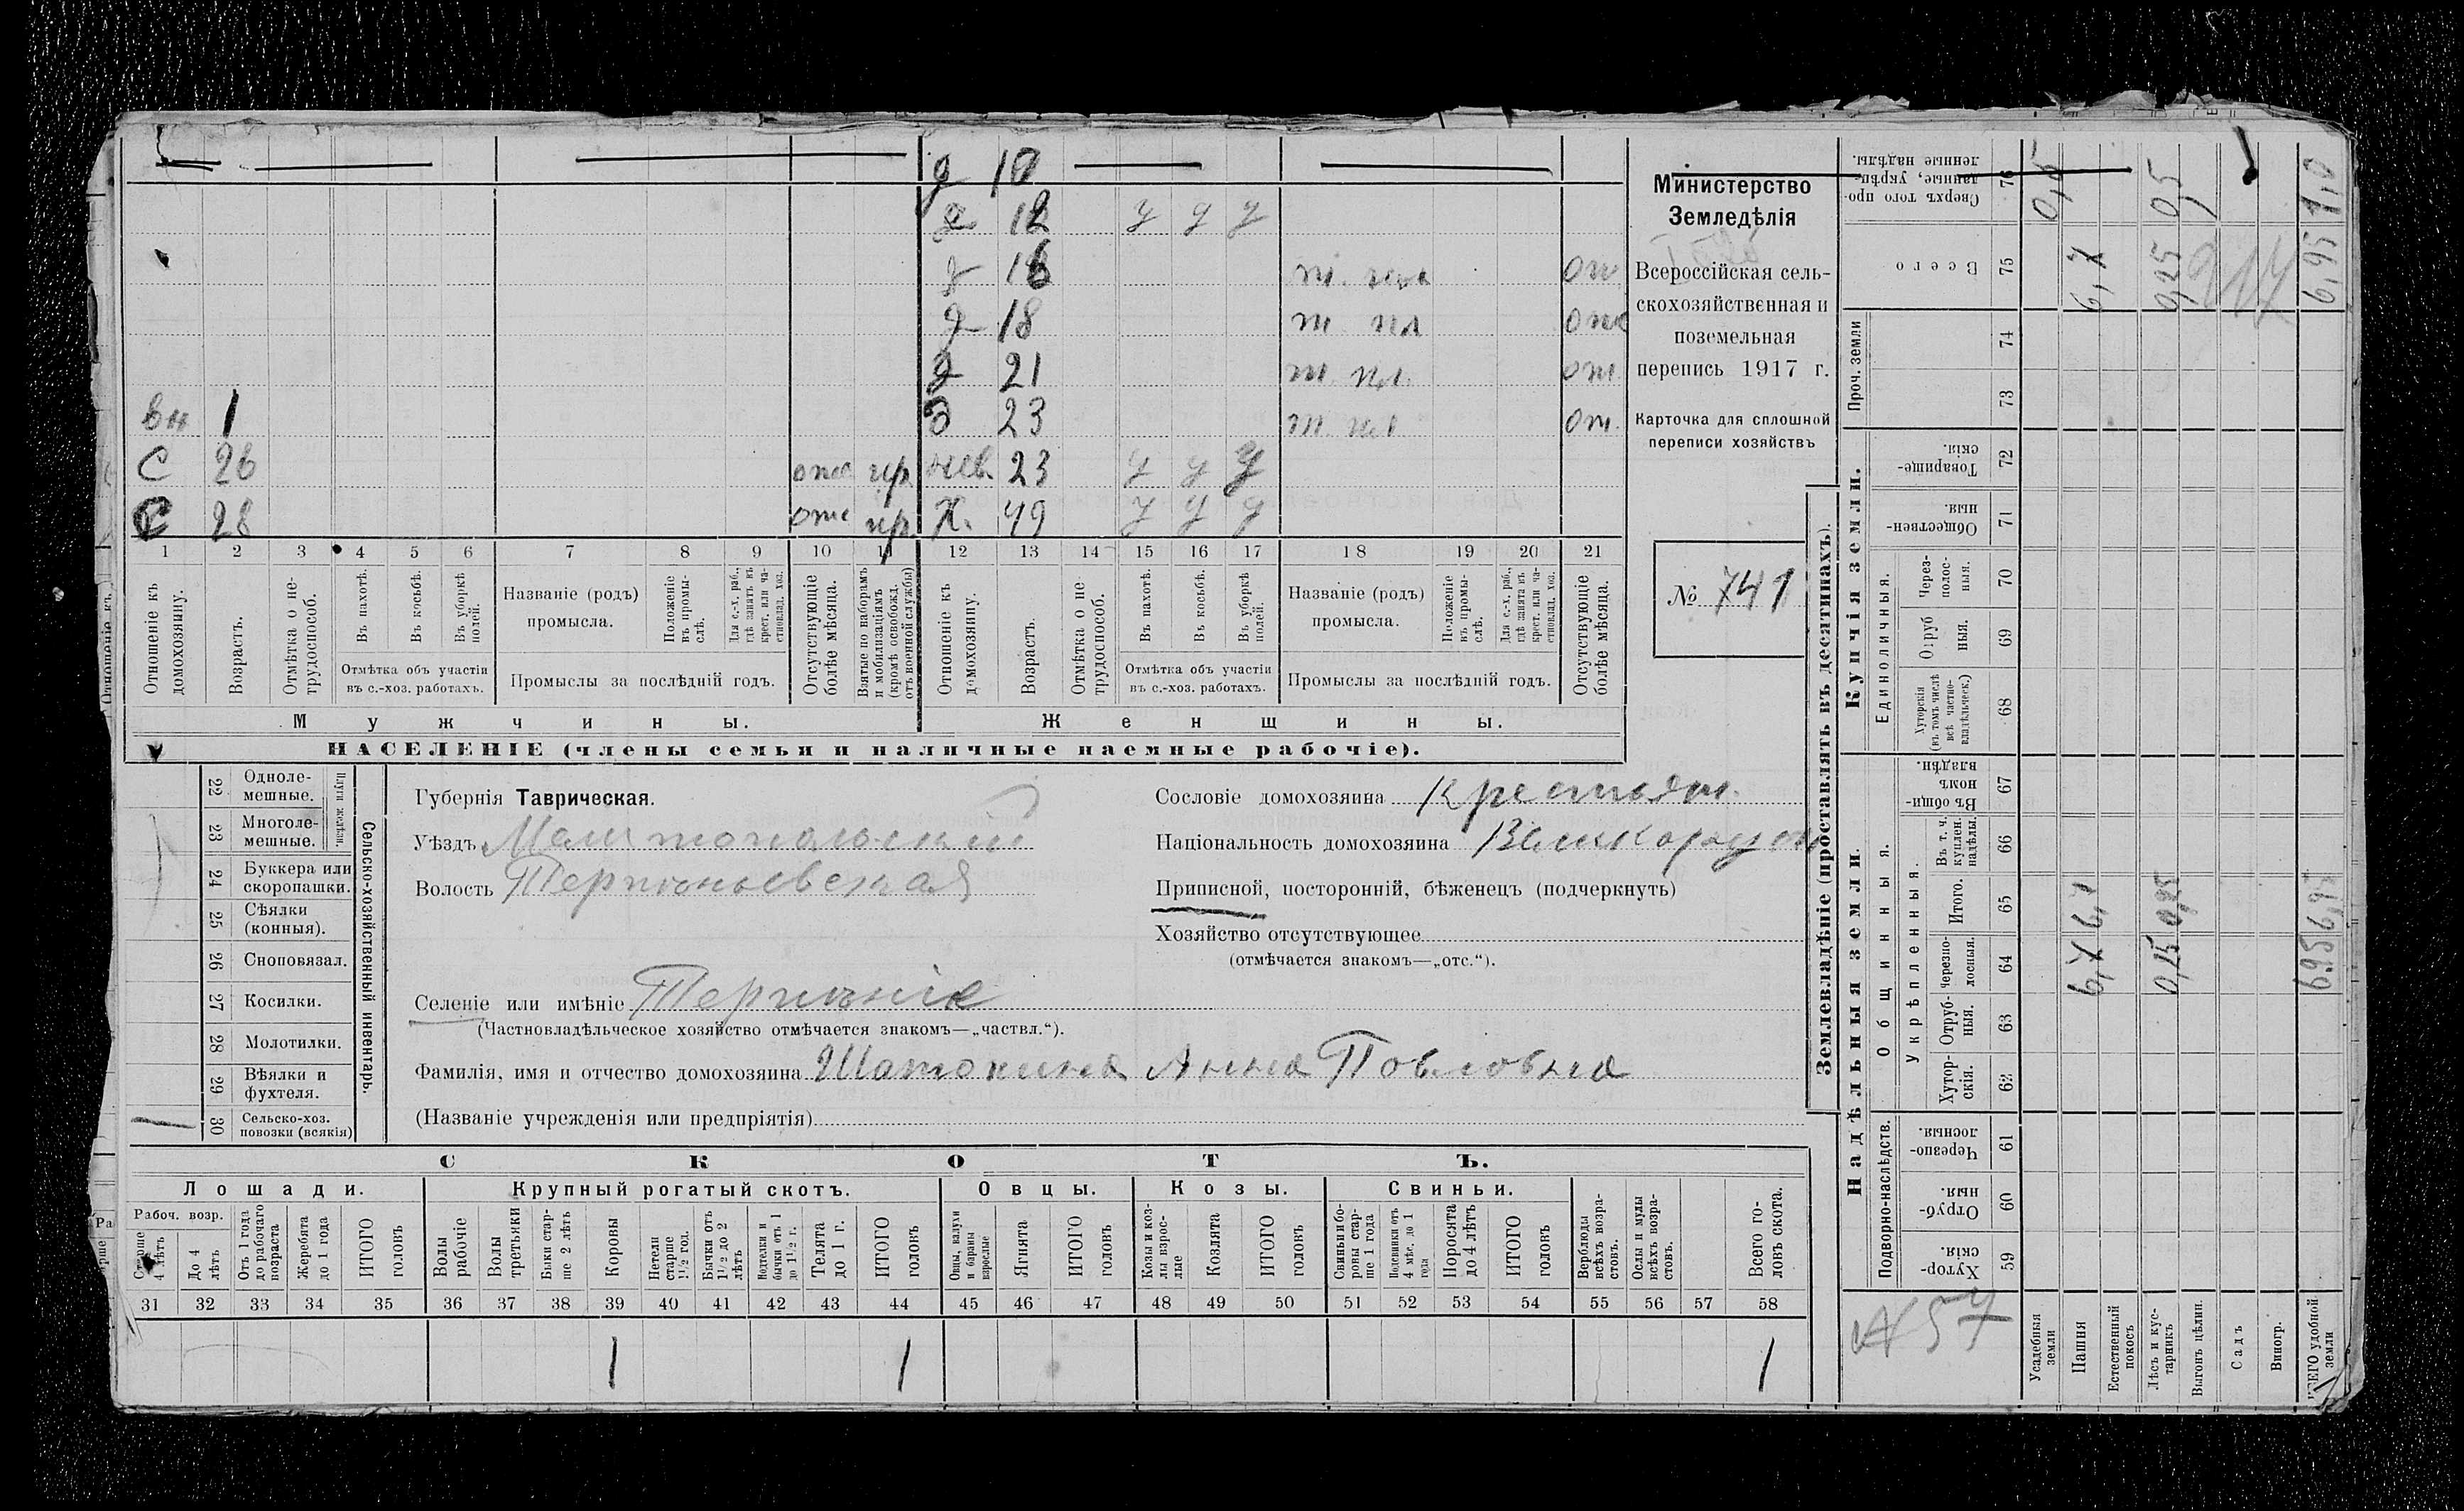 д 10
д 12 у у у
д 16 т. пол от
д 18 т пл отс
д 21 т. пл. от.
вн 1 д 23 т. пл от.
С 26 отс. пр. нев. 23 у у у
С 28 отс пр. Ж. 49 у у у
1 2 3 4 5 6 7 8 9 10 11 12 13 14 15 16 17 18 19 20 21
Отношеніе къ домохозяину.
Возрастъ.
Отмѣтка о нетрудоспособ.
Въ пахотѣ.
Въ косьбѣ.
Въ уборкѣ полей.
Отмѣтка объ участіи
въ с.-хоз. работахъ.
Названіе (родъ)
промысла.
Положеніе въ промыслѣ.
Для с.-х. раб., гдѣ занятъ въ крест. или частновлад. хоз.
Промыслы за послѣдній годъ.
Отсутствующіе болѣе мѣсяца.
Взятые по наборамъ и мобилизаціямъ (кромѣ освобожд. отъ военной службы)
Отношеніе къ домохозяину.
Возрастъ.
Отмѣтка о нетрудоспособ.
Въ пахотѣ.
Въ косьбѣ.
Въ уборкѣ полей.
Отмѣтка объ участіи
въ с.-хоз. работахъ.
Названіе (родъ)
промысла.
Положеніе въ промыслѣ.
Для с.-х. раб., гдѣ занята въ крест. или частновлад. хоз.
Промыслы за послѣдній годъ.
Отсутствующіе болѣе мѣсяца.
Мужчины. Женщины.
НАСЕЛЕНІЕ (члены семьи и наличные наемные рабочіе).
Министерство
Земледѣлія
Всероссійская сель-
скохозяйственная и
поземельная
перепись 1917 г.
Карточка для сплошной
переписи хозяйствъ
№ 741
22 Одноле-
мешные.
23 Многоле-
мешные.
Плуги желѣзн.
24 Буккера или
скоропашки.
25 Сѣялки
(конныя).
26 Сноповязал.
27 Косилки.
28 Молотилки.
29 Вѣялки и
фухтеля.
1 30 Сельско-хоз.
повозки (всякія)
Сельско-хозяйственный инвентарь.
Губернія Таврическая.
Уѣздъ Мелитопольскій
Волость Терпѣньевская
Селеніе или имѣніе Терпѣніе
(Частновладѣльческое хозяйство отмѣчается знакомъ—„частвл.“).
Фамилія, имя и отчество домохозяина Шатохина Анна Павловна
(Названіе учрежденія или предпріятія)
Сословіе домохозяина Крестьян.
Національность домохозяина Великорус
Приписной, посторонній, бѣженецъ (подчеркнуть)
Хозяйство отсутствующее
(отмѣчается знакомъ—„отс.“).
СКОТЪ.
Лошади. Крупный рогатый скотъ. Овцы. Козы. Свиньи.
Рабоч. возр.
Старше 4 лѣтъ
До 4 лѣтъ
Отъ 1 года до рабочаго возраста
Жеребята до 1 года
ИТОГО головъ
Волы рабочіе
Волы третьяки
Быки старше 2 лѣтъ
Коровы
Нетели старше 1½ год.
Бычки отъ 1½ до 2 лѣтъ
Подтелки и бычки отъ 1 до 1½ г.
Телята до 1 г.
ИТОГО головъ
Овцы, валухи и бараны взрослые
Ягнята
ИТОГО головъ
Козы и козлы взрослые
Козлята
ИТОГО головъ
Свиньи и боровы старше 1 года
Подсвинки отъ 4 мѣс. до 1 года
Поросята до 4 лѣтъ
ИТОГО головъ
Верблюды всѣхъ возрастовъ.
Ослы и мулы всѣхъ возрастовъ.
Всего головъ скота.
31 32 33 34 35 36 37 38 39 40 41 42 43 44 45 46 47 48 49 50 51 52 53 54 55 56 57 58
1 1 1
Землевладѣніе (проставлять въ десятинахъ).
Надѣльныя земли.
Купчія земли.
Проч. земли
Подворно-наслѣдств.
Общинныя.
Укрѣпленныя.
Единоличныя.
Сверхъ того проданные, укрѣпленные надѣлы. 76
Всего 75
74
73
Товарищескія. 72
Общественныя. 71
Черезполосныя. 70
Отрубныя. 69
Хуторскія (въ томъ числѣ всѣ частновладѣльческ.) 68
Въ общинномъ владѣн. 67
Въ т. ч. куплен. надѣлы. 66
Итого. 65
Черезполосныя. 64
Отрубныя. 63
Хуторскія. 62
Черезполосныя. 61
Отрубныя. 60
Хуторскія. 59
№ 57
Усадебныя земли 0,5
Пашня 6,7 6,7 6,7
Естественный покосъ
Лѣсъ и кустарникъ 0,25 0,25 0,25 0,5
Выгонъ цѣлин.
Садъ
Виногр.
ВСЕГО удобной земли 6,95 6,95 6,95 1,0